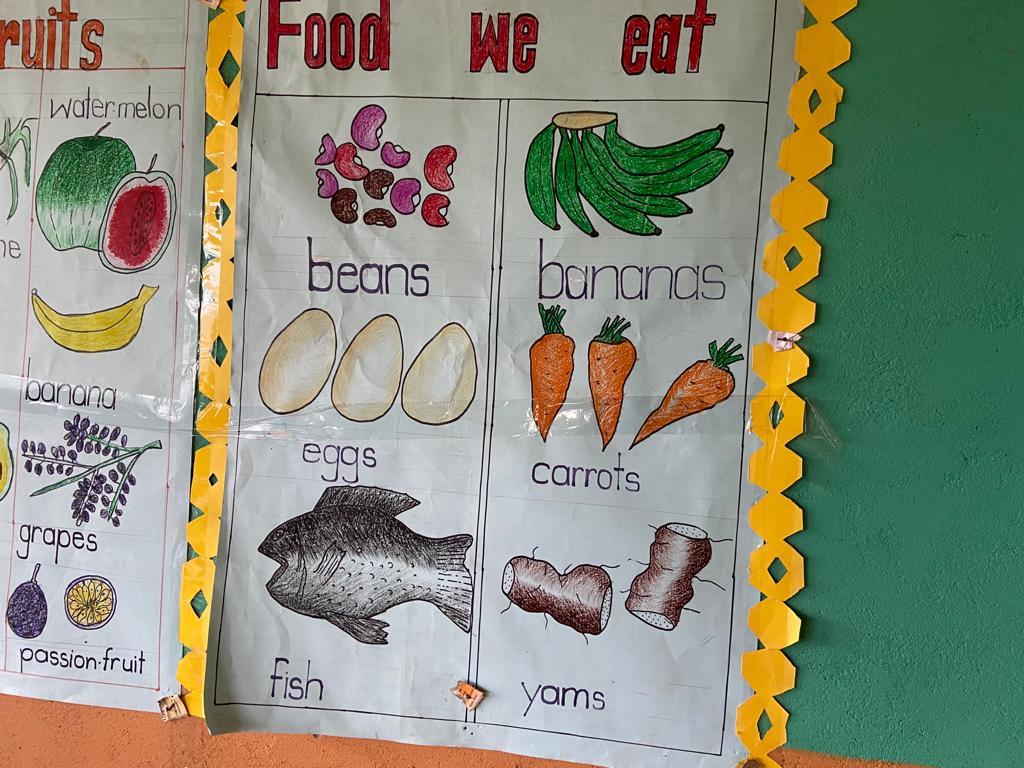 ruits
watermelon
banana
grapes
passion-fruit
Food we eat
beans
bananas
eggs
carrots
fish
yams